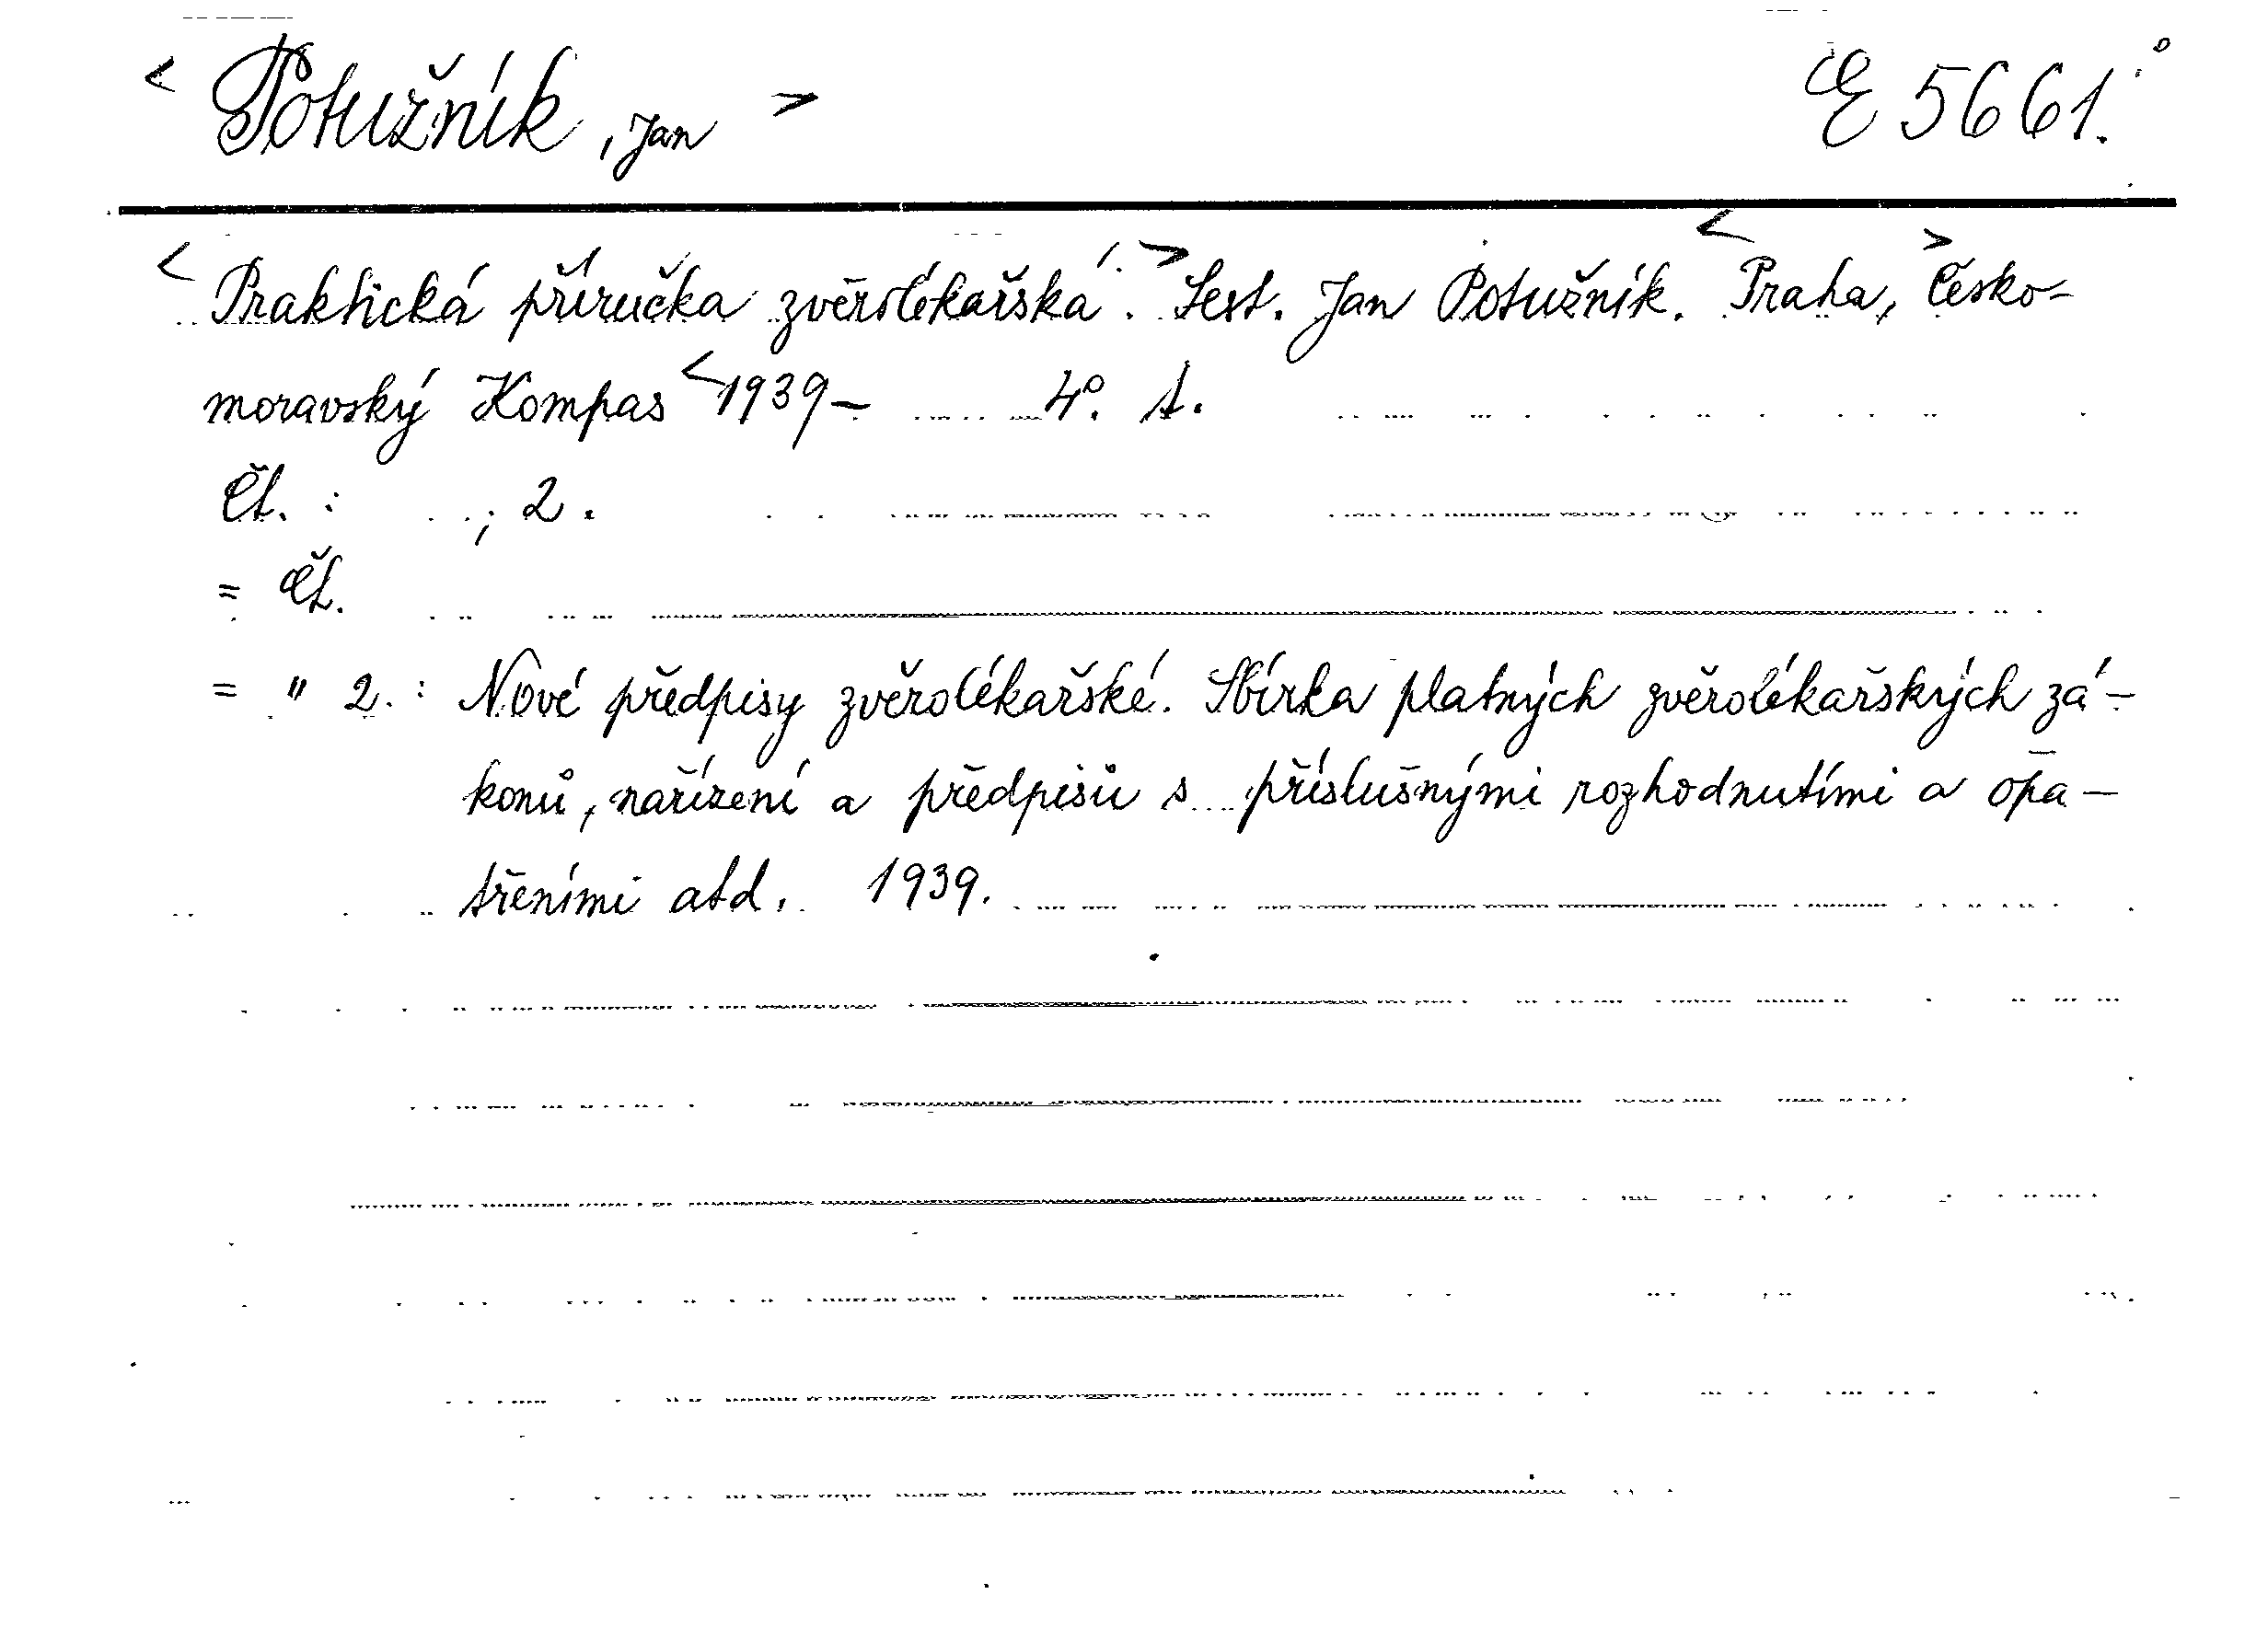 < Potužník, Jan > E 5661.
< Praktická příručka zvěrolékařská. > Sest. Jan Potužník. < Praha, > Česko-
moravský Kompas < 1939- 4°. A.
Čt. : ; 2.
= Čt.
= " 2. : Nové předpisy zvěrolékařské. Sbírka platných zvěrolékařských zá-
konů, nařízení a předpisů s příslušnými rozhodnutími a opa-
třeními atd. 1939.